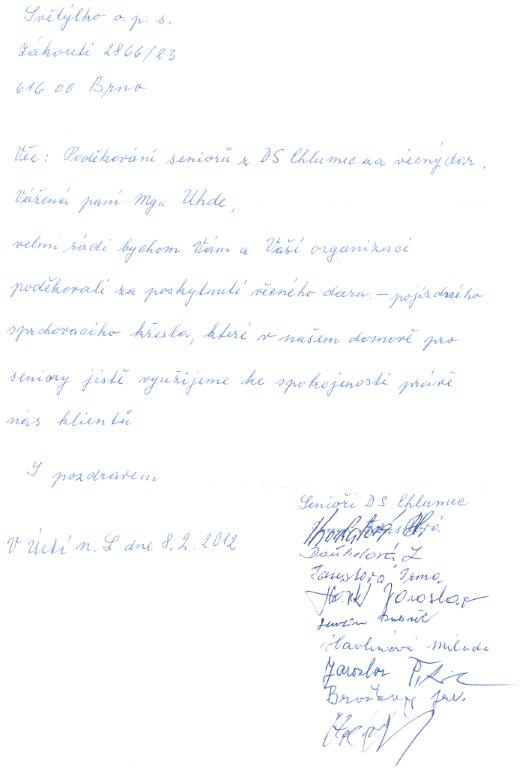 Světýlko o. p. s.
Zákoutí 2866/23
616 00 Brno
Věc: Poděkování seniorů z DS Chlumec za věcný dar.
Vážená paní Mgr. Uhde,
velmi rádi bychom Vám a Vaší organizaci
poděkovali za poskytnutí věcného daru. – pojízdného
sprchovacího křesla, které v našem domově pro
seniory jistě využijeme ke spokojenosti právě
nás klientů.
S pozdravem
Senioři DS Chlumec
V Ústí n. L dne 8. 2. 2012
Irma
Jaroslav
Havlínová Milada
Jaroslav